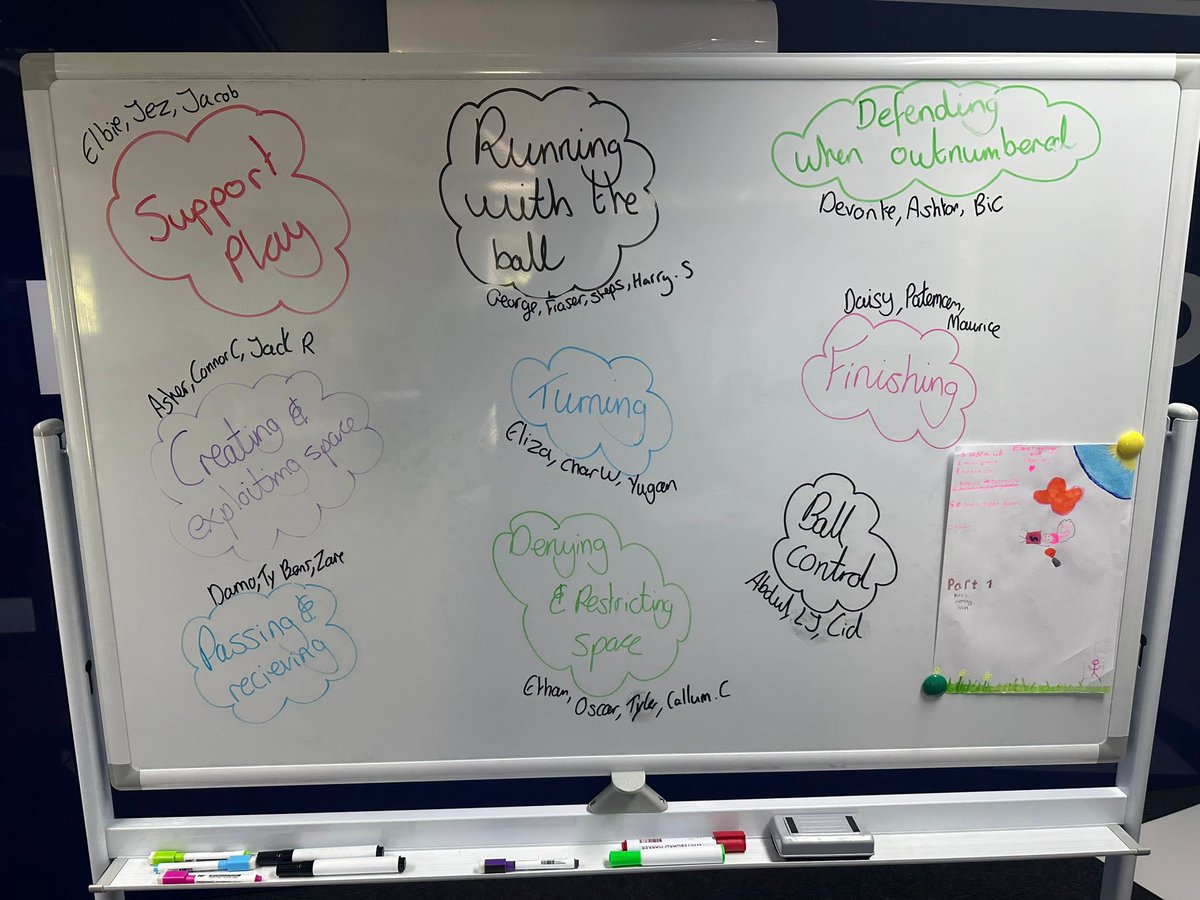 Elbie, Jez, Jacob
Support
Play
Running
with the
ball
George, Fraser, Steps, Harry.S
Defending
when outnumbered
Devonte, Ashton, Bic
Asher, Connor C, Jack R
Creating &
exploiting space
Turning
Eliza, Char W, Yugan
Daisy, Pateman,
Maurice
Finishing
Damo, Ty Bens, Zane
Passing &
recieving
Denying
& Restricting
space
Ethan, Oscar, Tyler, Callum.C
Ball
control
Abdul, LJ, Cid
Part 1